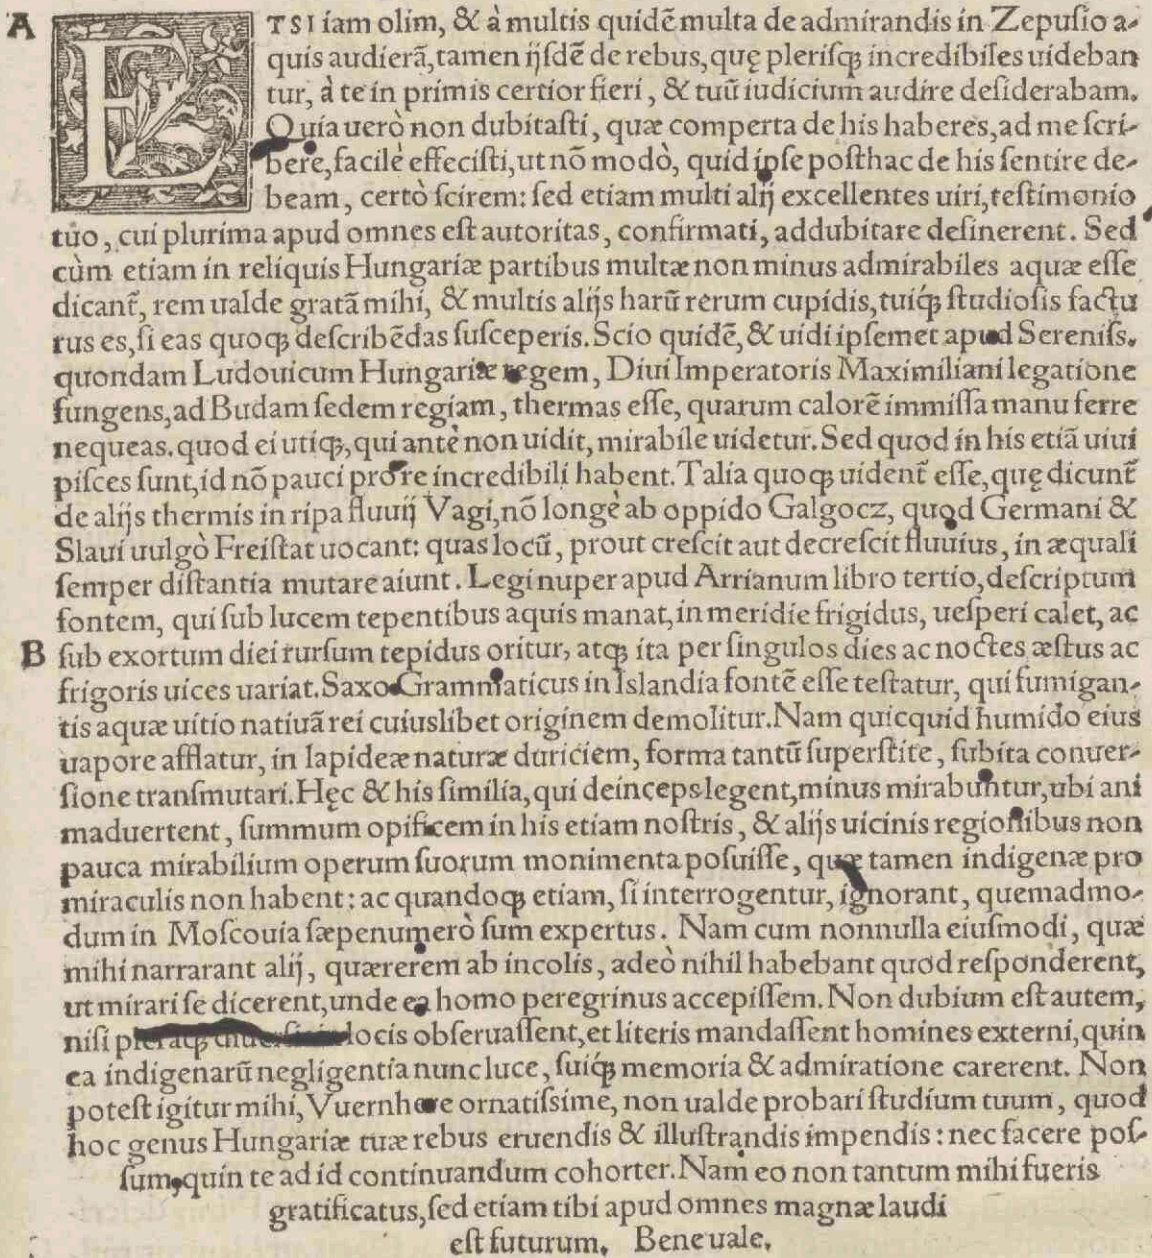 A ETSI iam olim, & à multis quidē multa de admirandis in Zepusio a-
quis audierã, tamen ijſdē de rebus, quę pleriſq; incredibiles uideban
tur, à te in primis certior fieri, & tuũ iudicium audire deſiderabam.
Quia uerò non dubitaſti, quæ comperta de his haberes, ad me ſcri-
bere, facilè effeciſti, ut nõ modò, quid ipſe poſthac de his ſentire de-
beam, certò ſcirem: ſed etiam multi alij excellentes uiri, teſtimonio
tuo, cui plurima apud omnes eſt autoritas, confirmati, addubitare deſinerent. Sed
cùm etiam in reliquis Hungariæ partibus multæ non minus admirabiles aquæ eſſe
dicant̃, rem ualde gratã mihi, & multis alijs harũ rerum cupidis, tuiq́; ſtudioſis factu
rus es, ſi eas quoq; deſcribēdas ſuſceperis. Scio quidē, & uidi ipſemet apud Sereniſs.
quondam Ludouicum Hungariæ regem, Diui Imperatoris Maximiliani legatione
fungens, ad Budam ſedem regiam, thermas eſſe, quarum calorē immiſſa manu ferre
nequeas. quod ei utiq;, qui antè non uidit, mirabile uidetur. Sed quod in his etiã uiui
piſces ſunt, id nõ pauci prorſe incredibili habent. Talia quoq; uident̃ eſſe, quę dicunt̃
de alijs thermis in ripa fluuij Vagi, nõ longè ab oppido Galgocz, quod Germani &
Slaui uulgò Freiſtat uocant: quas locũ, prout creſcit aut decreſcit fluuius, in æquali
ſemper diſtantia mutare aiunt. Legi nuper apud Arrianum libro tertio, deſcriptum
fontem, qui ſub lucem tepentibus aquis manat, in meridie frigidus, ueſperi calet, ac
B ſub exortum diei rurſum tepidus oritur, atq; ita per ſingulos dies ac noctes æſtus ac
frigoris uices uariat. Saxo Grammaticus in Islandia fontē eſſe teſtatur, qui fumigan-
tis aquæ uitio natiuã rei cuiuslibet originem demolitur. Nam quicquid humido eius
uapore afflatur, in lapideæ naturæ duriciem, forma tantũ ſuperſtite, ſubita conuer-
ſione tranſmutari. Hęc & his ſimilia, qui deinceps legent, minus mirabuntur, ubi ani
maduertent, ſummum opificem in his etiam noſtris, & alijs uicinis regionibus non
pauca mirabilium operum ſuorum monimenta poſuiſſe, quæ tamen indigenæ pro
miraculis non habent: ac quandoq; etiam, ſi interrogentur, ignorant, quemadmo-
dum in Moſcouia ſæpenumerò ſum expertus. Nam cum nonnulla eiuſmodi, quæ
mihi narrarant alij, quærerem ab incolis, adeò nihil habebant quod reſponderent,
ut mirari ſe dicerent, unde ea homo peregrinus accepiſſem. Non dubium eſt autem,
niſi pleraq; locis obſeruaſſent, et literis mandaſſent homines externi, quin
ea indigenarũ negligentia nunc luce, ſuiq́; memoria & admiratione carerent. Non
poteſt igitur mihi, Vuernhere ornatiſsime, non ualde probari ſtudium tuum, quod
hoc genus Hungariæ tuæ rebus eruendis & illuſtrandis impendis: nec facere poſ-
ſum, quin te ad id continuandum cohorter. Nam eo non tantum mihi fueris
gratificatus, ſed etiam tibi apud omnes magnæ laudi
eſt futurum. Bene uale.